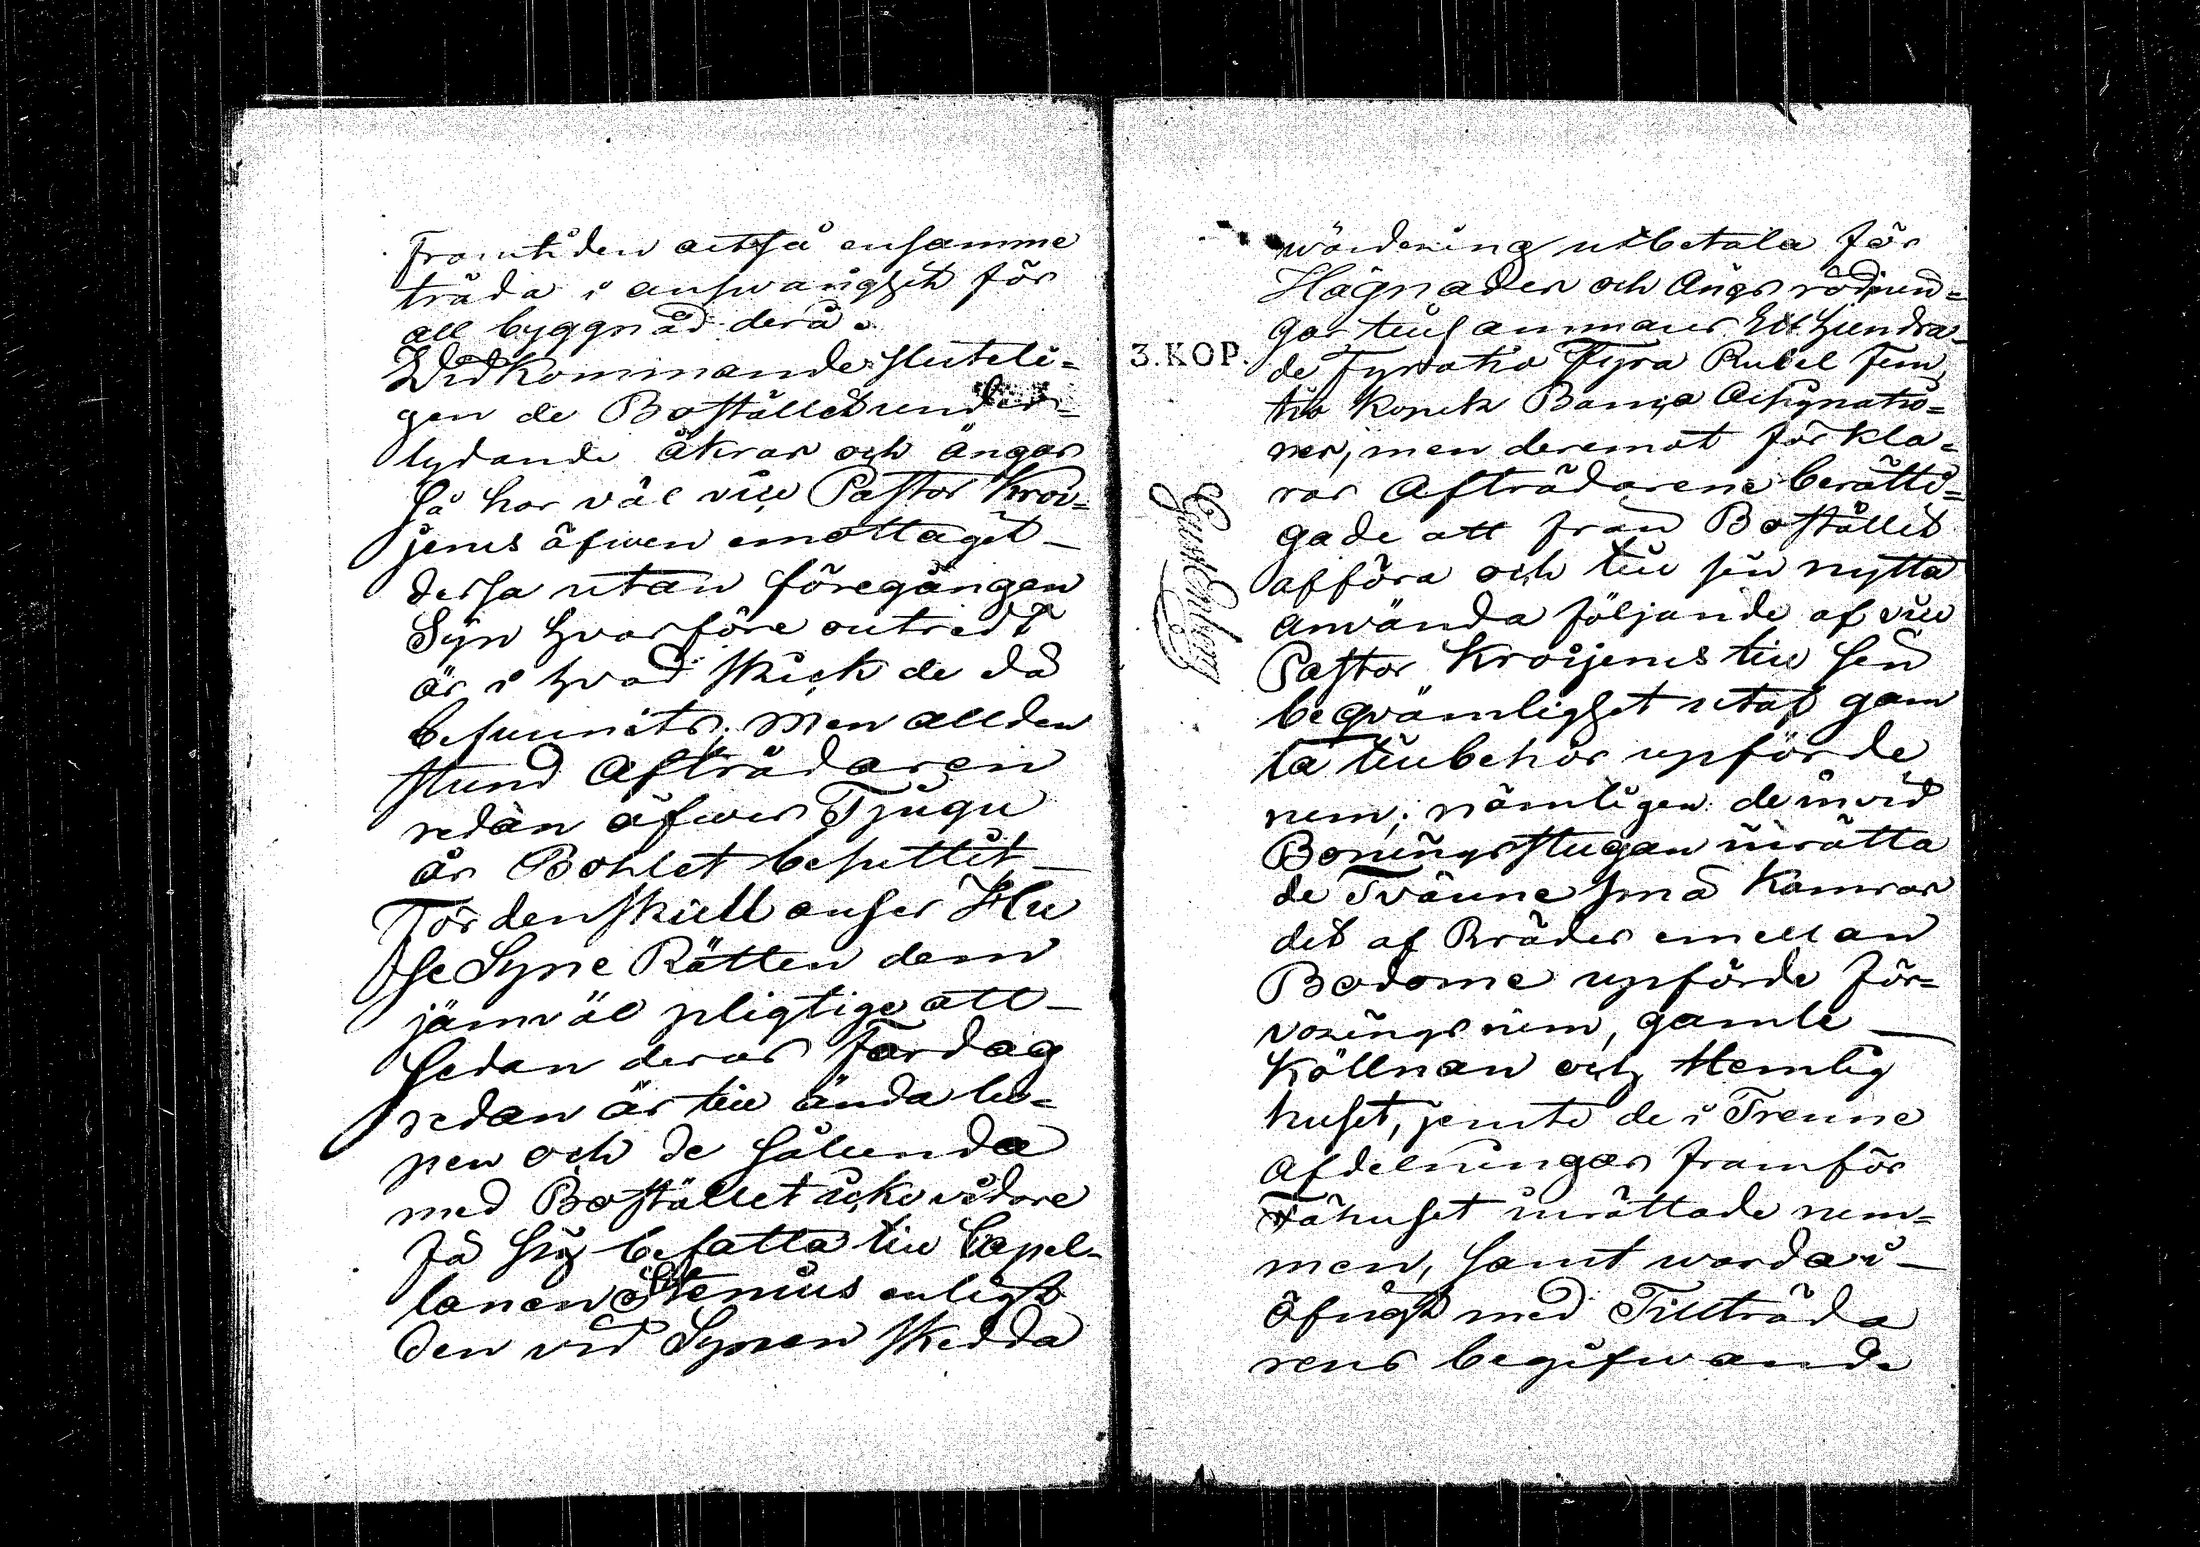 framtiden altså ensamme
träda i answarighet för
all byggnad derå.
Widkommande sluteli=
gen de Bostället under=
lydande åkrar och ängar
så har väl vice Pastor Kroi=
jerus äfwen emottagit
dessa utan föregången
Syn hvarföre outredt
är i hvad skick de då
befunnits; men allden
stund Afträdaren
redan öfwer Tjugu
år Bohlet besuttit
Tör denskull anser Hu
se Syne Rätten dem
jämväl pligtige att
sedan deras Fardag
redan är till ända lu=
pen och de sålunda
med Bostället icke vidare
få sig befatta till Capel=
lanen Stenius enligt
den vid Synen skedda
wärdering utbetala för
Hägnader och Ängs rödnin=
gar tillsammans Ett hundra
de Fyratio Fyra Rubel Fem
tio Kopek Banco Assignatio=
ner, men deremot förkla=
ras Afträdarene berätti=
gade att från Bostället
afföra och till sin nytta
använda följande af vice
Pastor Kroijerus till sin
beqvämlighet utaf gam
la tillbehör upförde
rum; nämligen de invid
Boningsstugan inrätta
de Tvänne små Kamrar
det af Bräder emellan
Bodorne upförde för=
varingsrum, gamle
Köllnan och Hemlig
huset, jemte de i Trenne
afdelningar framför
Fähuset inrättade rum=
men, samt warda i
öfrigt med Tillträda
rens begifwande
3. KOP.